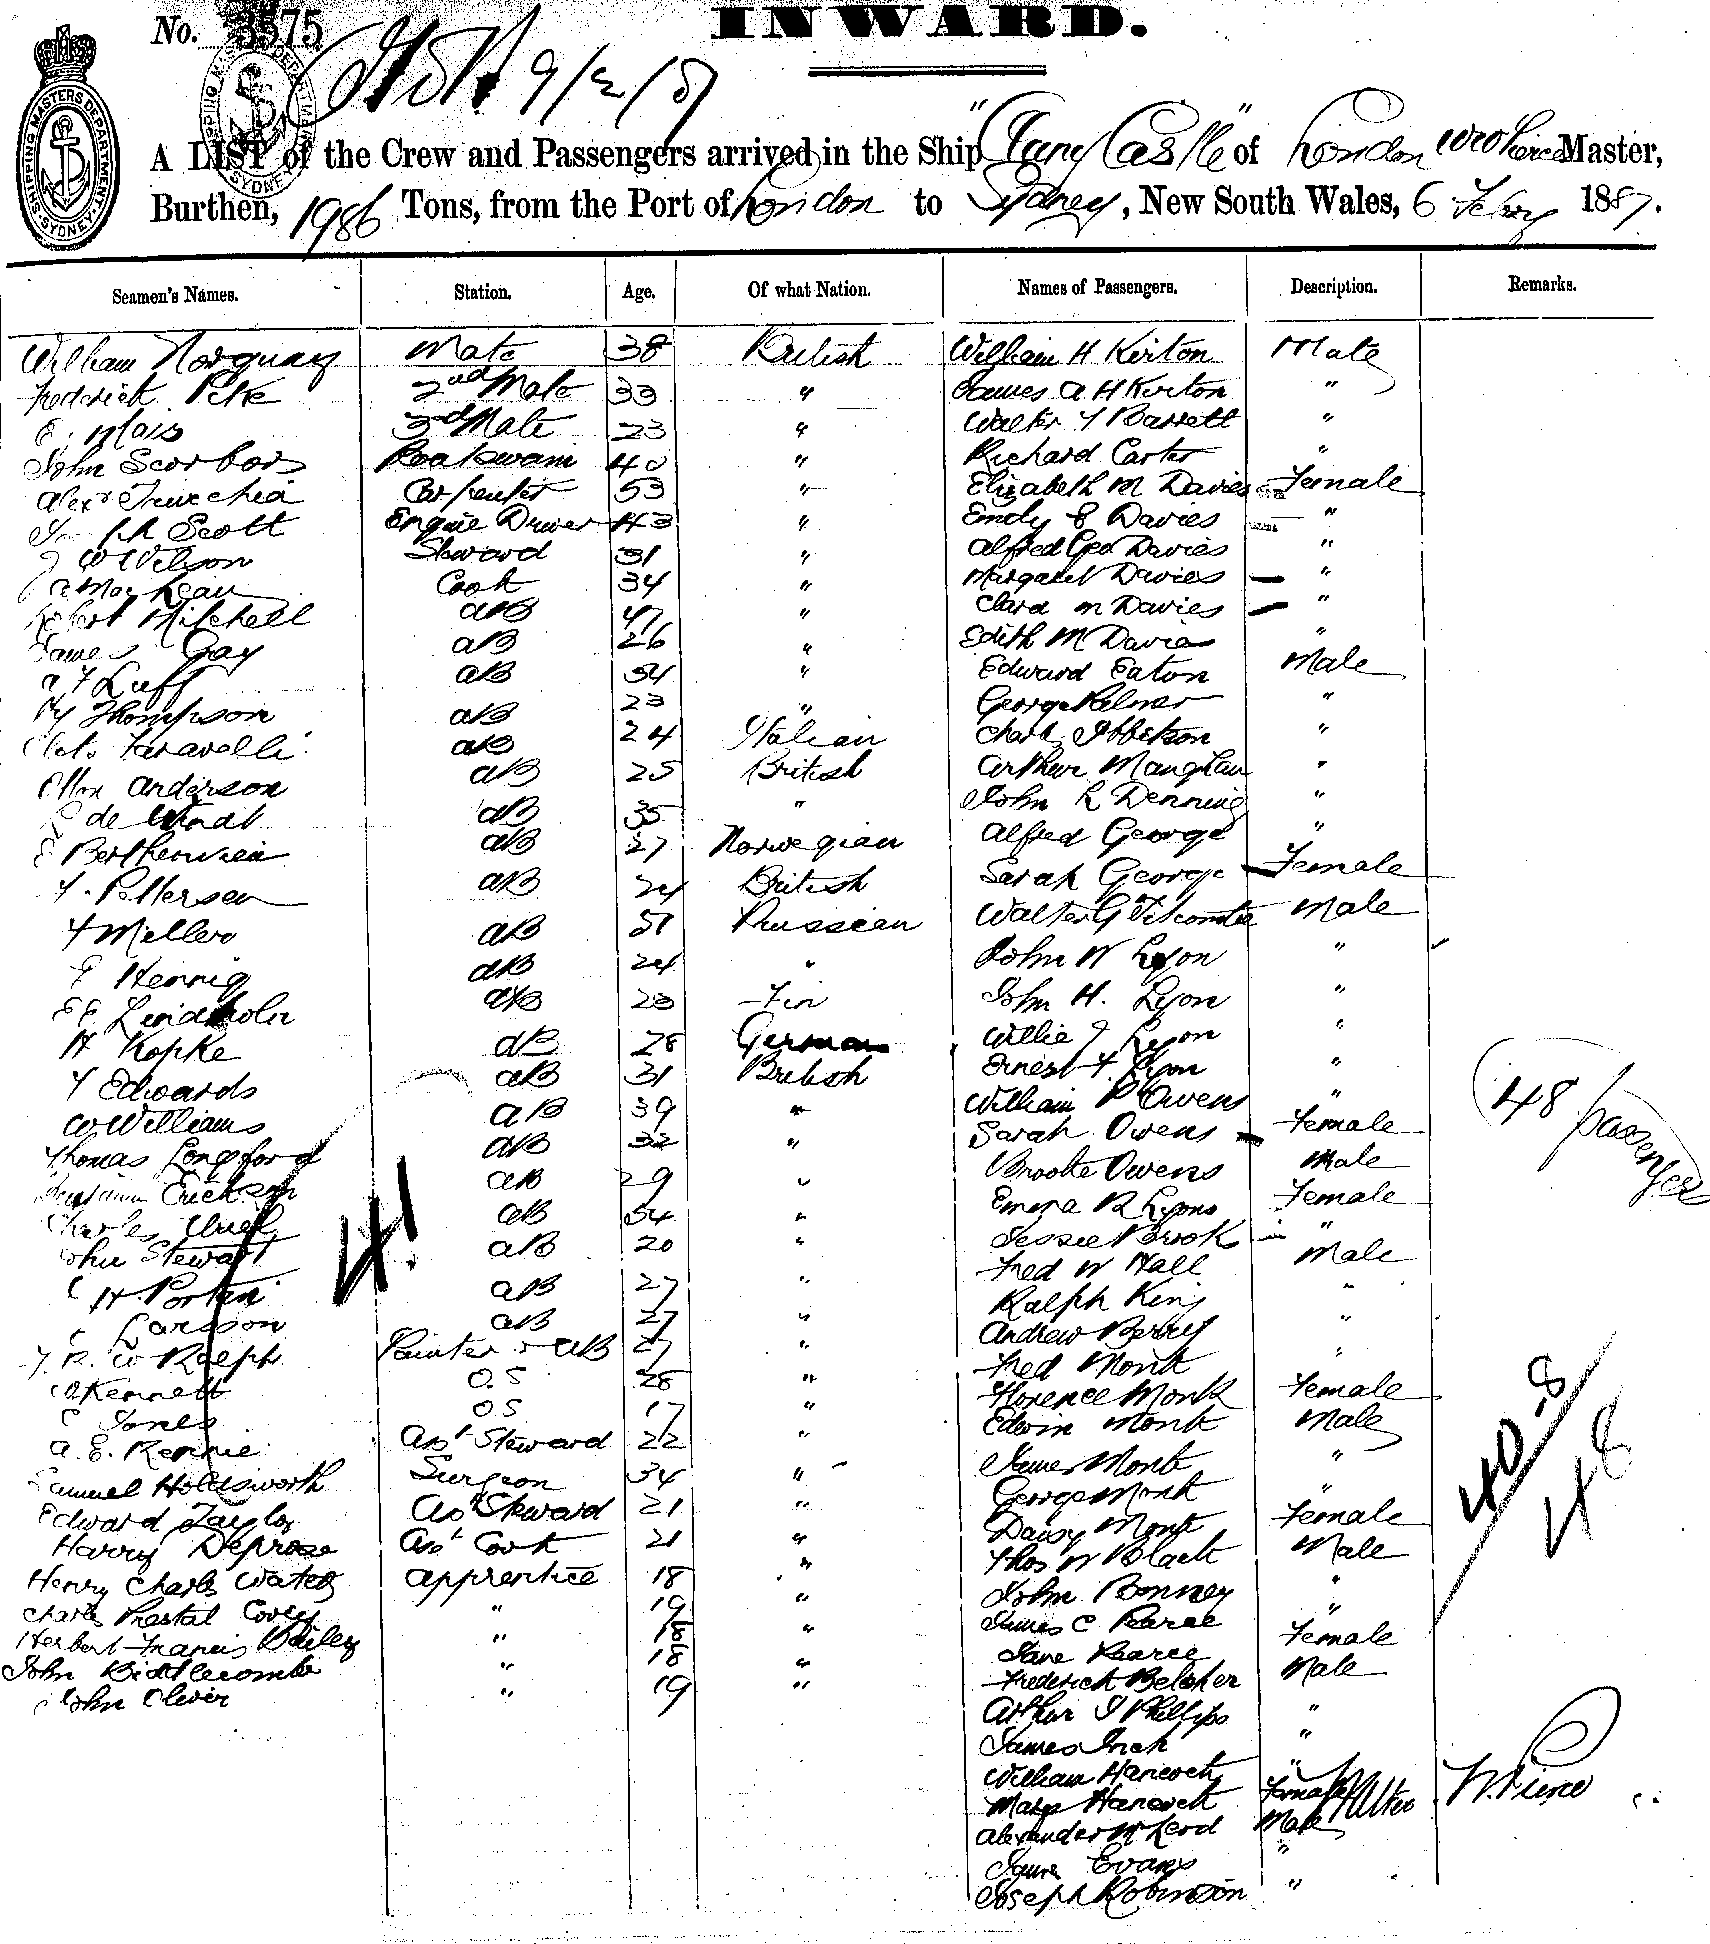 No. 3575
INWARD.
9/2/87
SHIPPING MASTERS DEPARTMENT SYDNEY
A LIST of the Crew and Passengers arrived in the Ship "Cluny Castle" of London Master,
Burthen, 1986 Tons, from the Port of London to Sydney, New South Wales, 6 Febry 1887.
Seamen's Names. Station. Age. Of what Nation. Names of Passengers. Description. Remarks.
William Norquay Mate 38 British William H Kirton Male
Frederick Pike 2nd Mate 33 " James A H Kirton "
E. Mais 3rd Mate 23 " Walter Y Barrett "
John Boatswain 40 " Richard Carter "
Alexr Carpenter 53 " Elizabeth M Davies Female
Scott Engine Driver 43 " Emily E Davies "
J W Wilson Steward 31 " Alfred Geo Davies "
Cook 34 " Margaret Davies "
Robert Mitchell AB 47 " Clara M Davies "
James Gay AB 26 " Edith M Davies "
Luff AB 34 " Edward Eaton Male
Hy Thompson AB 23 " George Palmer "
Taravelli AB 24 Italian Charles Ibbetson "
Anderson AB 25 British Arthur Maughan "
de Windt AB 35 " John R Denning "
AB 27 Norwegian Alfred George "
Petterson AB 24 British Sarah George Female
Miller AB 31 Russian Walter G Male
Hennig AB 24 " John W Lyon "
Lindholm AB 23 Fin John H. Lyon "
H Kopke AB 28 German Willie J Lyon "
Edwards AB 31 British Ernest F Lyon "
W Williams AB 39 " William P Owens "
Thomas Longford AB 32 " Sarah Owens Female
Erickson AB 29 " Brooke Owens Male
Charles AB 34 " Emma R Lyons Female
John Stewart AB 20 " Jessie Brook "
H. Porten AB 27 " Fred W Hall Male
Larsson AB 27 " Ralph King "
R. W Ralph Painter & AB 27 " Andrew Berry "
Kennett O.S 28 " Fred Monk "
Jones O S 17 " Florence Monk Female
A. E. Rennie Asst Steward 22 " Edwin Monk Male
Samuel Holdsworth Surgeon 34 " James Monk "
Edward Taylor Asst Steward 21 " George Monk "
Harry Deprose Asst Cook 21 " Daisy Monk Female
Henry Charles Waters Apprentice 18 " Thos W Black Male
Charles Prestal Covey " 19 " John Bonney "
Herbert Francis Bailey " " James C Pearce "
John Biddlecombe " 18 " Jane Pearce Female
John Oliver " 19 " Frederick Belcher Male
Arthur J Phillips "
James Inch "
William Hancock "
Mary Hancock Female
Alexander McLeod Male
Evans "
Joseph Robinson "
41
48 passengers
40-8
48
W. Pierce